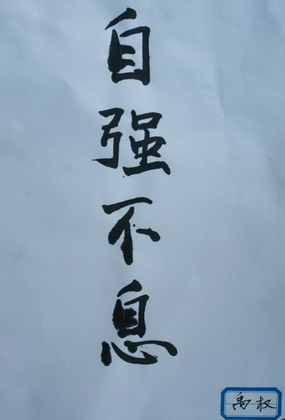 自强不息
禹权